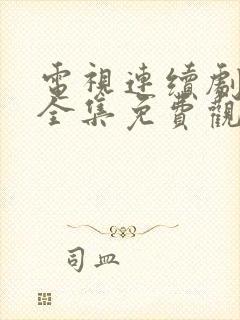 電視連續劇
全集免費觀
司皿